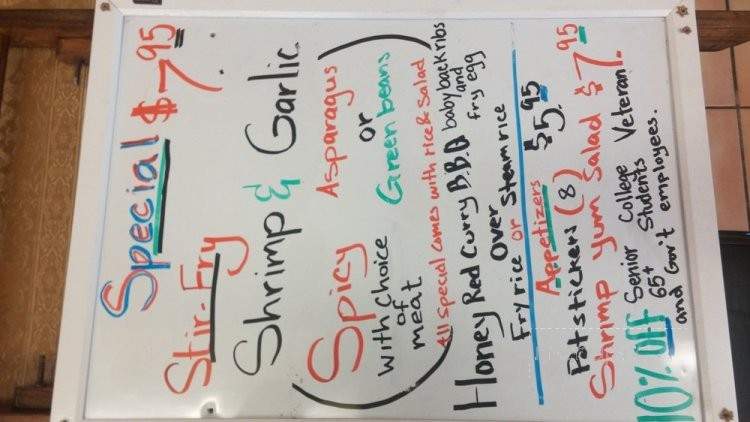 Special $7.95
Stir-Fry
Shrimp & Garlic
(Spicy Asparagus
with choice or
of Green beans)
meat
All special comes with rice & Salad
Honey Red Curry B.B.Q babyback ribs
and
Over fry egg
Fry rice or Steam rice
Appetizers
Potstickers (8) $5.95
Shrimp Yum Salad $7.95
10% Off Senior College Veteran.
65+ Students
and Gov't employees.